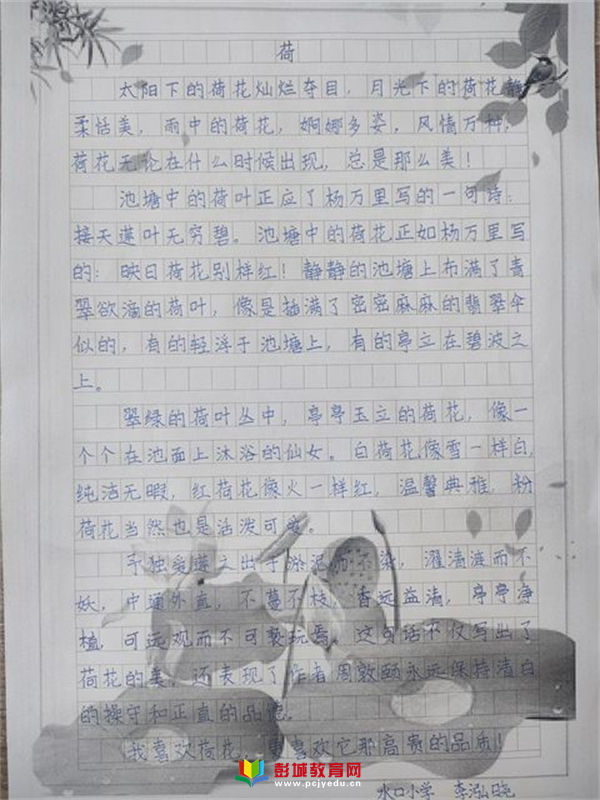 荷
太阳下的荷花灿烂夺目,月光下的荷花静
柔恬美,雨中的荷花,婀娜多姿,风情万种,
荷花无论在什么时候出现,总是那么美!
池塘中的荷叶正应了杨万里写的一句诗:
接天莲叶无穷碧。池塘中的荷花正如杨万里写
的:映日荷花别样红!静静的池塘上布满了青
翠欲滴的荷叶,像是插满了密密麻麻的翡翠伞
似的,有的轻浮于池塘上,有的亭立在碧波之
上。
翠绿的荷叶丛中,亭亭玉立的荷花,像一
个个在池面上沐浴的仙女。白荷花像雪一样白,
纯洁无暇,红荷花像火一样红,温馨典雅,粉
荷花当然也是活泼可爱。
予独爱莲之出于淤泥而不染,濯清涟而不
妖,中通外直,不蔓不枝,香远益清,亭亭净
植,可远观而不可亵玩焉。这句话不仅写出了
荷花的美,还表现了作者周敦颐永远保持清白
的操守和正直的品德。
我喜欢荷花,更喜欢它那高贵的品质!
彭城教育网
www.pcjyedu.cn
水口小学 李泓晓